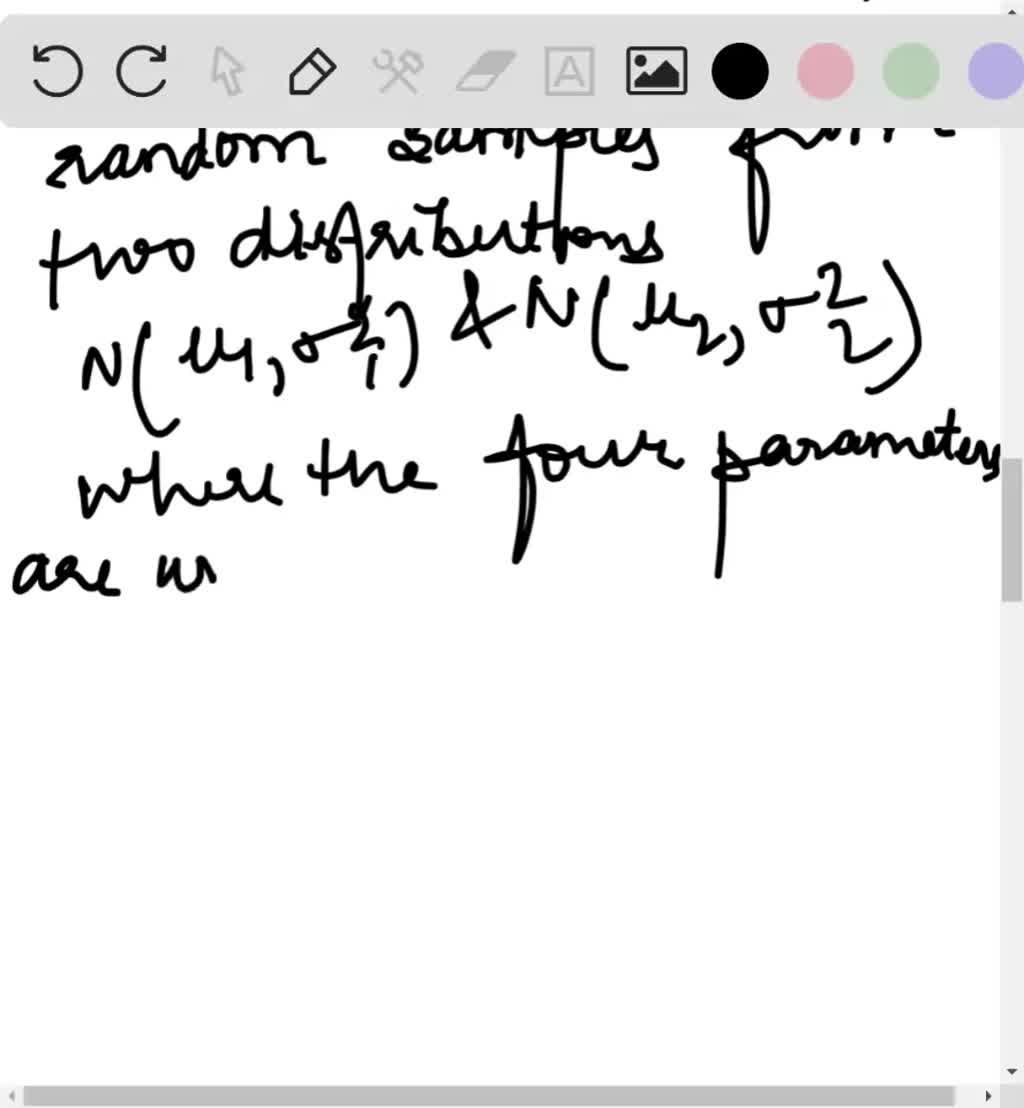 random samples from
two distributions
N(μ1, σ²1) & N(μ2, σ²2)
where the four parameters
are un